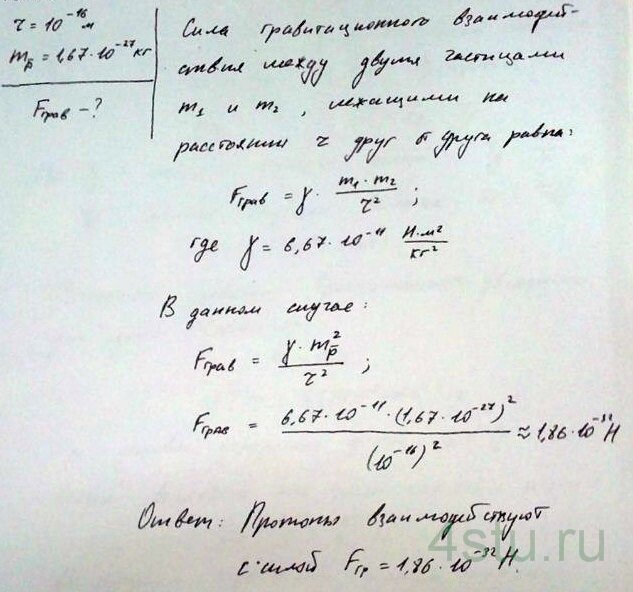 r = 10⁻¹⁶ м
m_p̄ = 1,67·10⁻²⁷ кг
F_грав – ?
Сила гравитационного взаимодей-
ствия между двумя частицами
m₁ и m₂, лежащими на
расстоянии r друг от друга равна:
F_грав = γ · (m₁ · m₂) / r² ;
где γ = 6,67 · 10⁻¹¹ Н·м²/кг²
В данном случае:
F_грав = (γ · m_p̄²) / r² ;
F_грав = (6,67 · 10⁻¹¹ · (1,67 · 10⁻²⁷)²) / (10⁻¹⁶)² ≈ 1,86 · 10⁻³² Н
Ответ: Протоны взаимодействуют
с силой F_гр = 1,86 · 10⁻³² Н.
4stu.ru